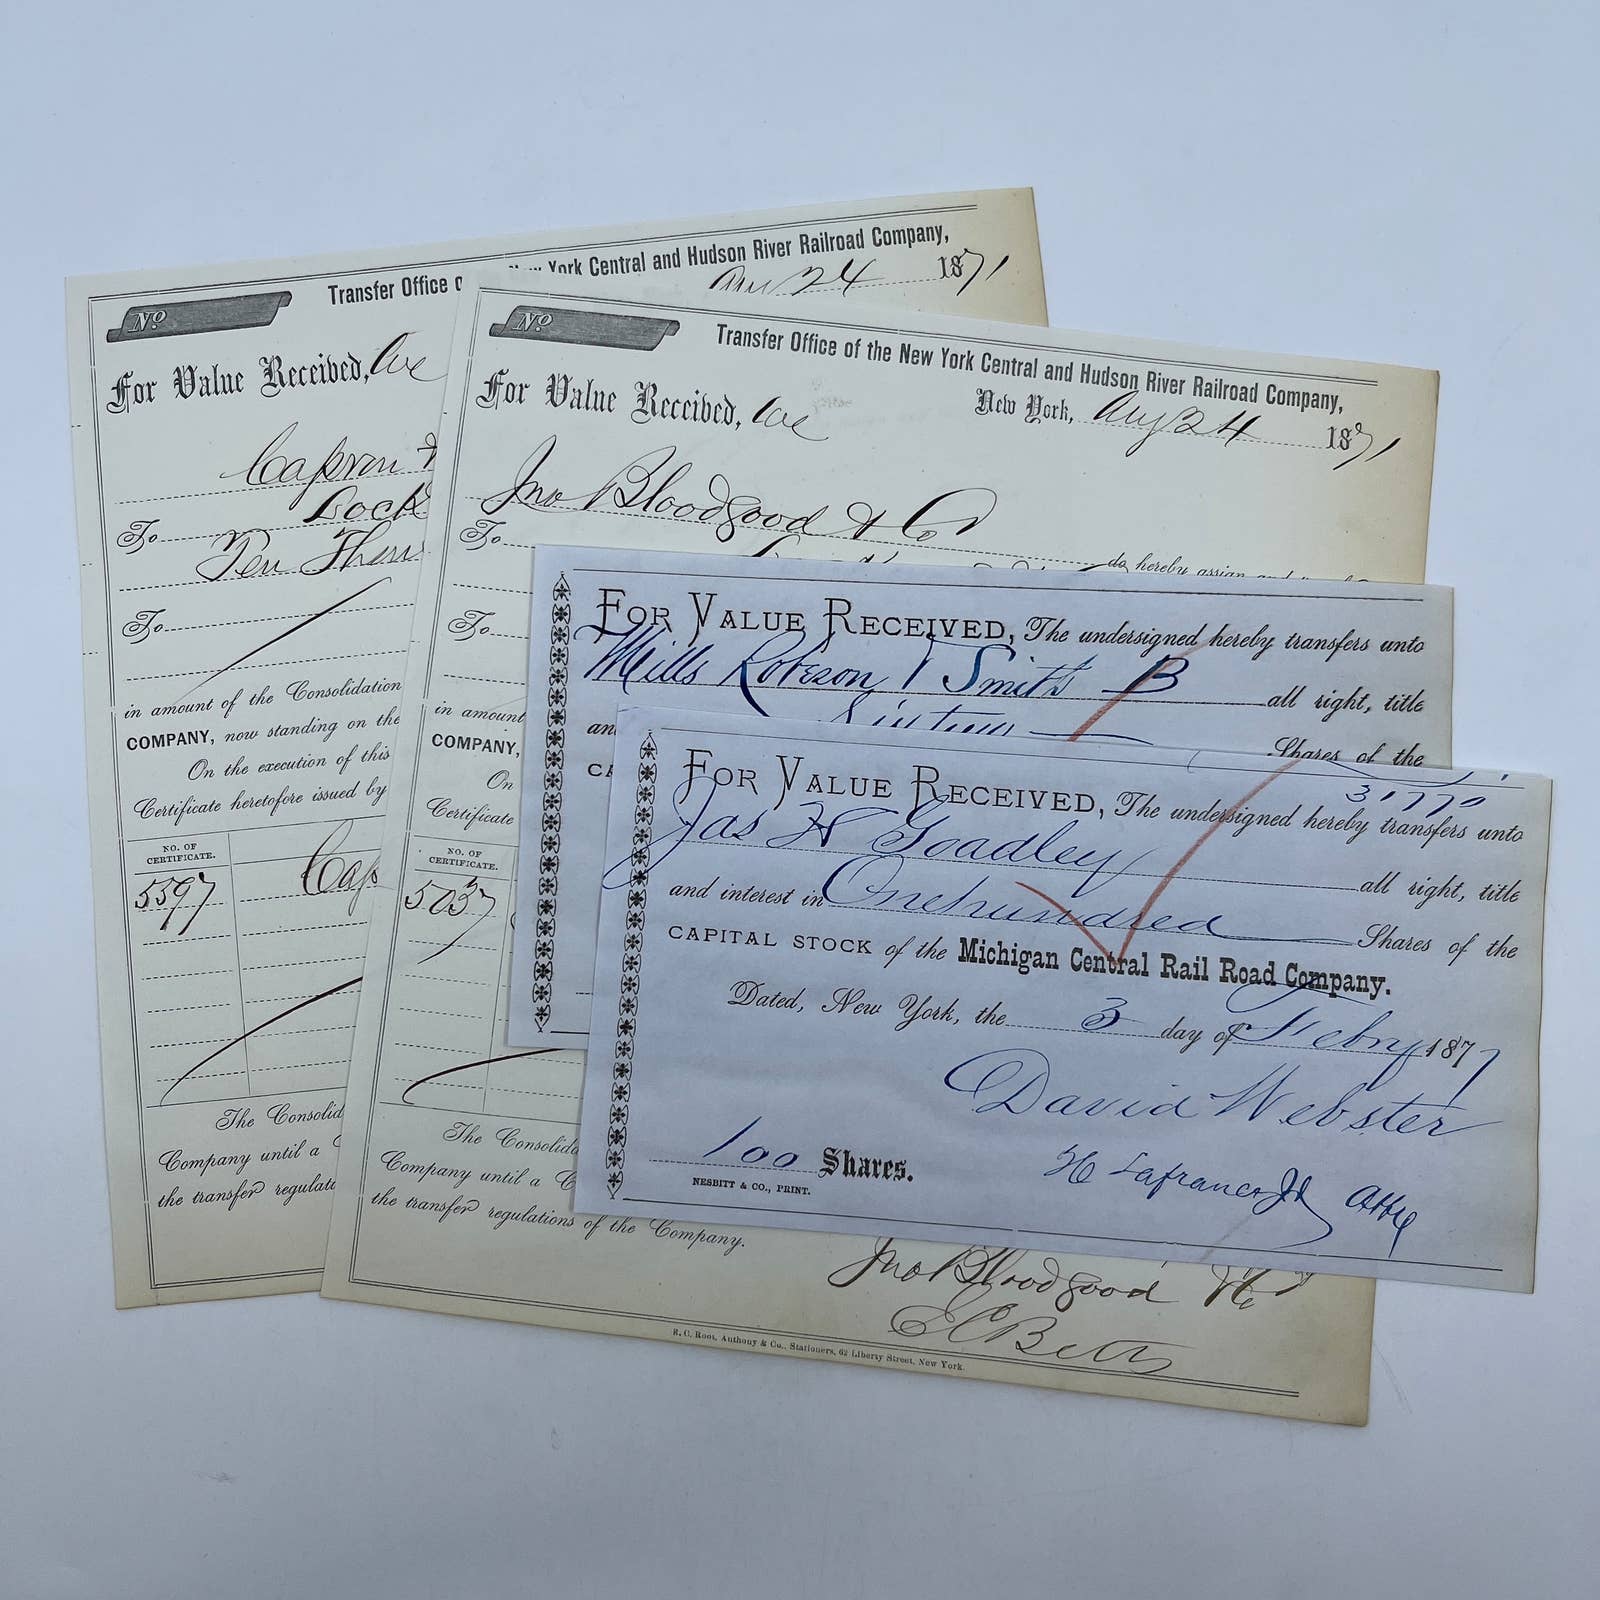 Transfer Office o
York Central and Hudson River Railroad Company,
24 1871
No
For Value Received, We
Capron
Lock
To
Ten Thou
To
in amount of the Consolidation
COMPANY, now standing on the
On the execution of this
Certificate heretofore issued by
NO. OF CERTIFICATE.
5597 Cap
The Consolid
Company until a
the transfer regulati
Transfer Office of the New York Central and Hudson River Railroad Company,
No
For Value Received, We
New York, Aug 24 1871
Jno Bloodgood & Co
To
do hereby assign and
To
in amount
COMPANY,
On
Certificate
NO. OF CERTIFICATE.
5037
The Consolida
Company until a C
the transfer regulations of the Company.
Jno Bloodgood & Co
E C Betts
R. C. Root, Anthony & Co., Stationers, 62 Liberty Street, New York.
FOR VALUE RECEIVED, The undersigned hereby transfers unto
Mills Robeson & Smith B all right, title
an Sixteen Shares of the
CA
31770
FOR VALUE RECEIVED, The undersigned hereby transfers unto
Jas H Goadley all right, title
and interest in Onehundred Shares of the
CAPITAL STOCK of the Michigan Central Rail Road Company.
Dated, New York, the 3 day of Febry 1877
David Webster
100 Shares.
H Lafrance Jr Atty
NESBITT & CO., PRINT.